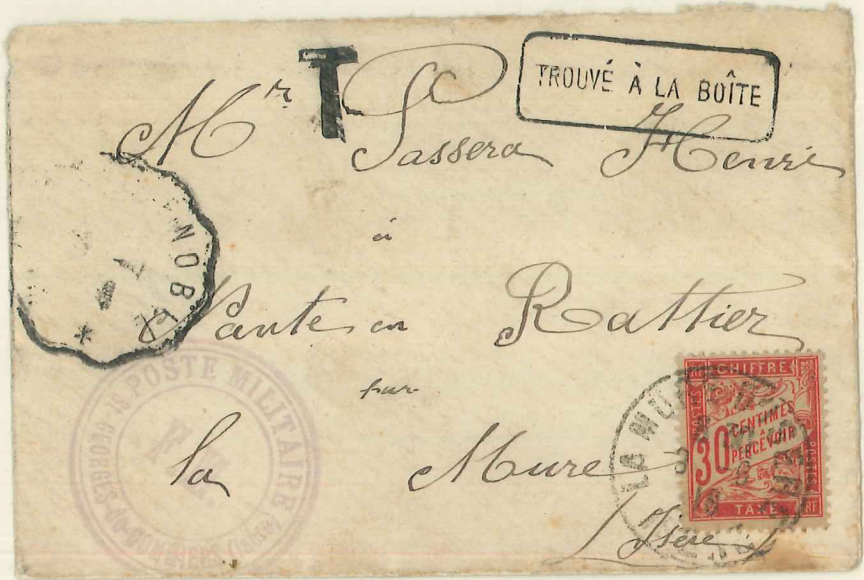 T
TROUVÉ À LA BOÎTE
Mr Sassera Henri
à
Nante en Rattier
sur
la Mure
Isère
NOBLE
POSTE MILITAIRE
F.M.
GEORGES-de-COMMIERS (Isère)
LA MURE
ISÈRE
CHIFFRE
POSTES
30 CENTIMES
PERCEVOIR
TAXE
RF